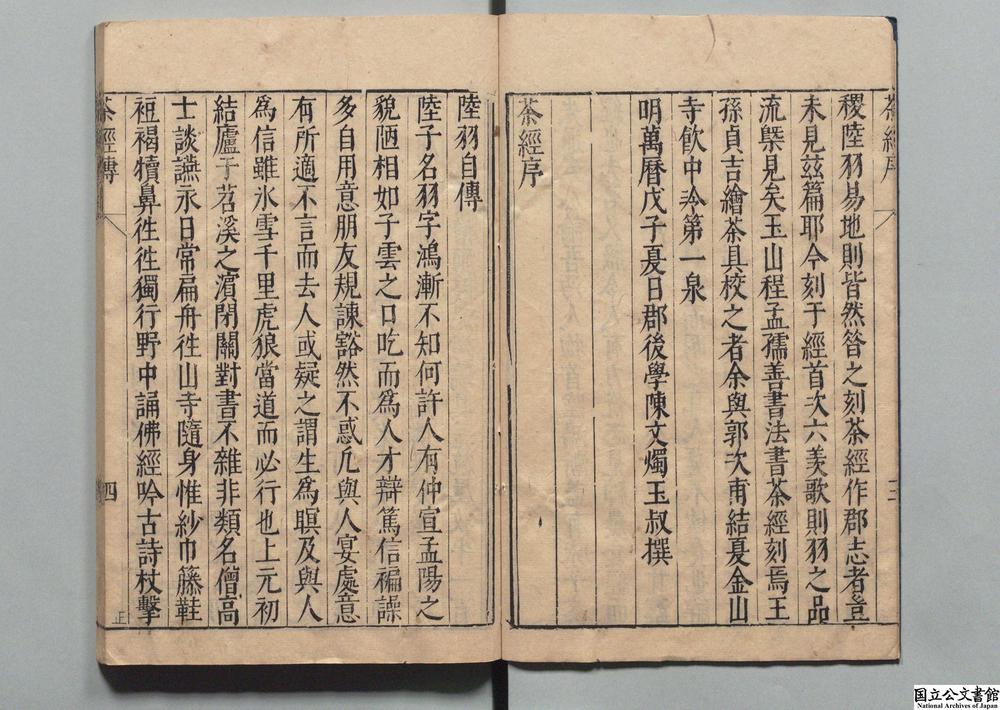 茶經序
稷陸羽易地則皆然昝之刻茶經作郡志者豈
未見茲篇耶今刻于經首次六羨歌則羽之品
流槩見矣玉山程孟孺善書法書茶經刻焉王
孫貞吉繪茶具校之者余與郭次甫結夏金山
寺飲中泠第一泉
明萬曆戊子夏日郡後學陳文燭玉叔撰
茶經序
陸羽自傳
陸子名羽字鴻漸不知何許人有仲宣孟陽之
貌陋相如子雲之口吃而為人才辯篤信褊譟
多自用意朋友規諫豁然不惑凡與人宴處意
有所適不言而去人或疑之謂生為瞋及與人
為信雖氷雪千里虎狼當道而必行也上元初
結廬于苕溪之濵閉關對書不雜非類名僧高
士談讌永日常扁舟徃山寺隨身惟紗巾籐鞋
裋褐犢鼻徃徃獨行野中誦佛經吟古詩杖擊
茶經傳
四
正
国立公文書館
National Archives of Japan